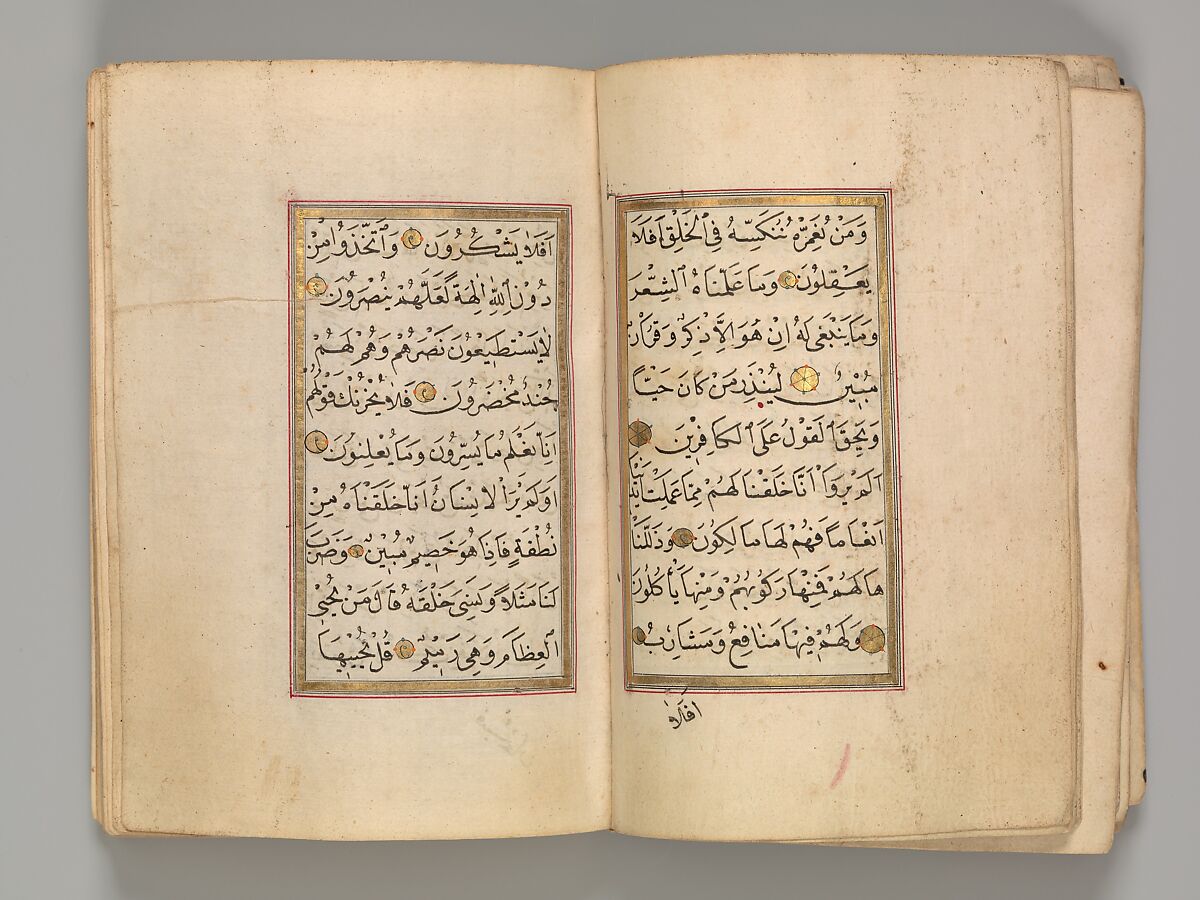 وَمَنْ نُعَمِّرْهُ نُنَكِّسْهُ فِي الْخَلْقِ اَفَلَا
يَعْقِلُوْنَ وَمَا عَلَّمْنَاهُ الشِّعْرَ
وَمَا يَنْبَغِي لَهُ اِنْ هُوَ اِلَّا ذِكْرٌ وَقُرْاٰنٌ
مُبِيْنٌ لِيُنْذِرَ مَنْ كَانَ حَيًّا
وَيَحِقَّ الْقَوْلُ عَلَى الْكَافِرِيْنَ
اَوَلَمْ يَرَوْا اَنَّا خَلَقْنَا لَهُمْ مِمَّا عَمِلَتْ اَيْدِيْنَا
اَنْعَامًا فَهُمْ لَهَا مَالِكُوْنَ وَذَلَّلْنَا
هَا لَهُمْ فَمِنْهَا رَكُوْبُهُمْ وَمِنْهَا يَأْكُلُوْنَ
وَلَهُمْ فِيْهَا مَنَافِعُ وَمَشَارِبُ
افلا
اَفَلَا يَشْكُرُوْنَ وَاتَّخَذُوْا مِنْ
دُوْنِ اللّٰهِ اٰلِهَةً لَعَلَّهُمْ يُنْصَرُوْنَ
لَا يَسْتَطِيْعُوْنَ نَصْرَهُمْ وَهُمْ لَهُمْ
جُنْدٌ مُحْضَرُوْنَ فَلَا يَحْزُنْكَ قَوْلُهُمْ
اِنَّا نَعْلَمُ مَا يُسِرُّوْنَ وَمَا يُعْلِنُوْنَ
اَوَلَمْ يَرَ الْاِنْسَانُ اَنَّا خَلَقْنَاهُ مِنْ
نُطْفَةٍ فَاِذَا هُوَ خَصِيْمٌ مُبِيْنٌ وَضَرَبَ
لَنَا مَثَلًا وَنَسِيَ خَلْقَهُ قَالَ مَنْ يُحْيِي
الْعِظَامَ وَهِيَ رَمِيْمٌ قُلْ يُحْيِيْهَا